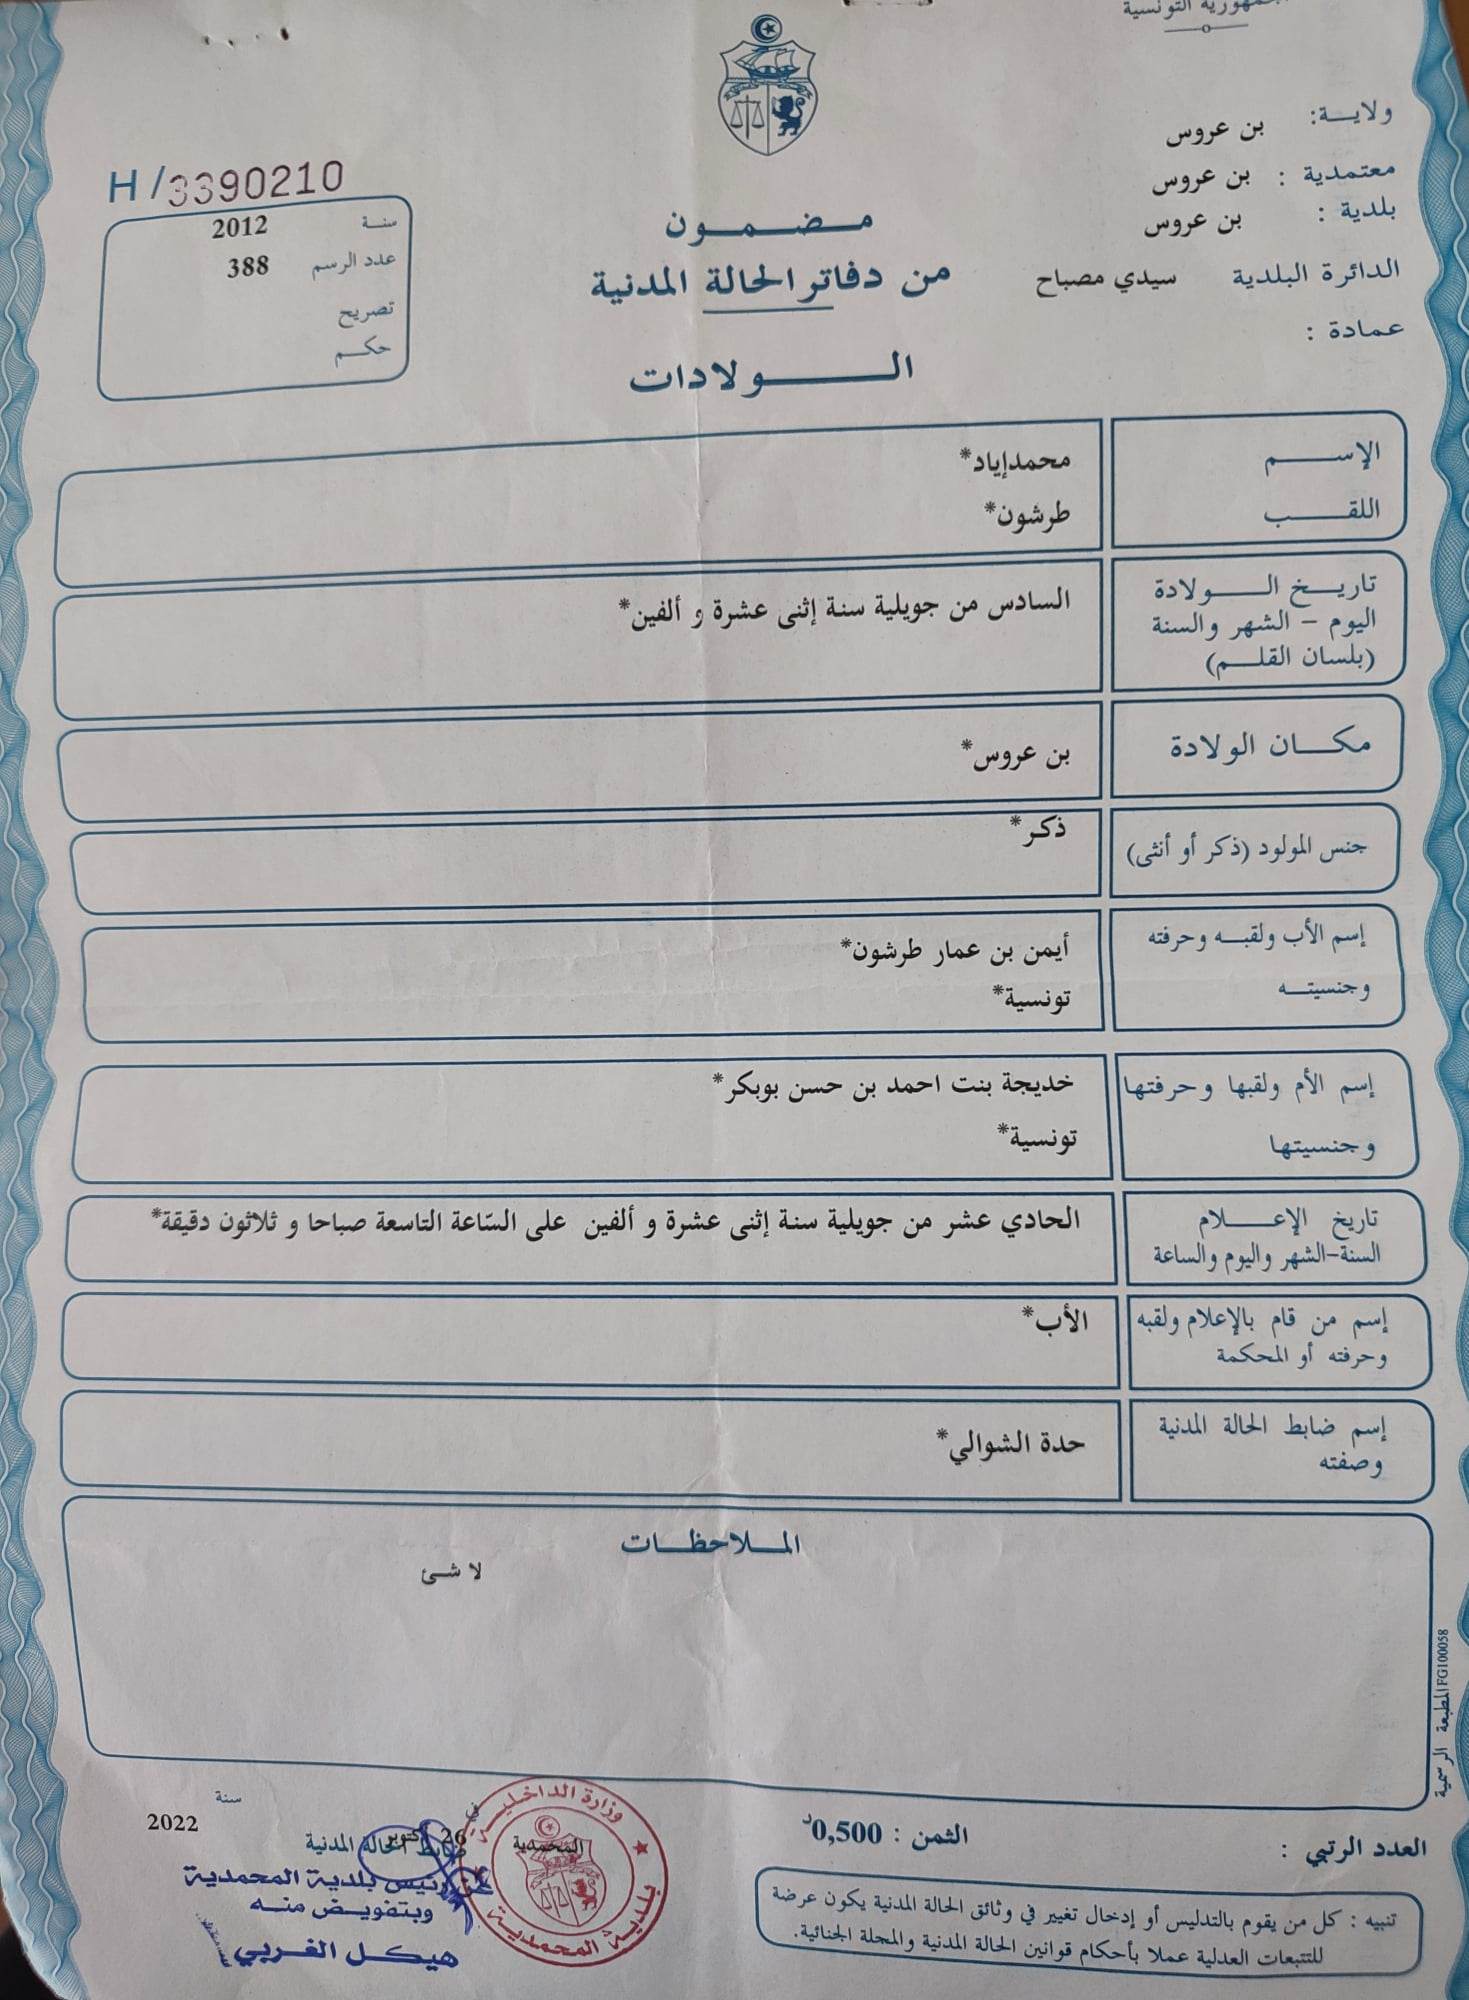 الجمهورية التونسية
ولاية: بن عروس
معتمدية : بن عروس
بلدية : بن عروس
الدائرة البلدية سيدي مصباح
عمادة :
مضمون
من دفاتر الحالة المدنية
الولادات
H/3390210
سنة 2012
عدد الرسم 388
تصريح
حكم
الإسم محمدإياد*
اللقب طرشون*
تاريخ الولادة
اليوم - الشهر والسنة
(بلسان القلم)
السادس من جويلية سنة إثنى عشرة و ألفين*
مكان الولادة بن عروس*
جنس المولود (ذكر أو أنثى) ذكر*
إسم الأب ولقبه وحرفته أيمن بن عمار طرشون*
وجنسيته تونسية*
إسم الأم ولقبها وحرفتها خديجة بنت احمد بن حسن بوبكر*
وجنسيتها تونسية*
تاريخ الإعلام
السنة-الشهر واليوم والساعة
الحادي عشر من جويلية سنة إثنى عشرة و ألفين على السّاعة التاسعة صباحا و ثلاثون دقيقة*
إسم من قام بالإعلام ولقبه
وحرفته أو المحكمة
الأب*
إسم ضابط الحالة المدنية
وصفته
حدة الشوالي*
الملاحظات
لا شئ
المطبعة الرسمية FG100058
العدد الرتبي :
الثمن : 0,500د
تنبيه : كل من يقوم بالتدليس أو إدخال تغيير في وثائق الحالة المدنية يكون عرضة
للتتبعات العدلية عملا بأحكام قوانين الحالة المدنية والمجلة الجنائية.
المحمدية في 26 أكتوبر سنة 2022
ضابط الحالة المدنية
وزارة الداخلية
بلدية المحمدية
رئيس بلدية المحمدية
وبتفويض منه
هيكل الغربي